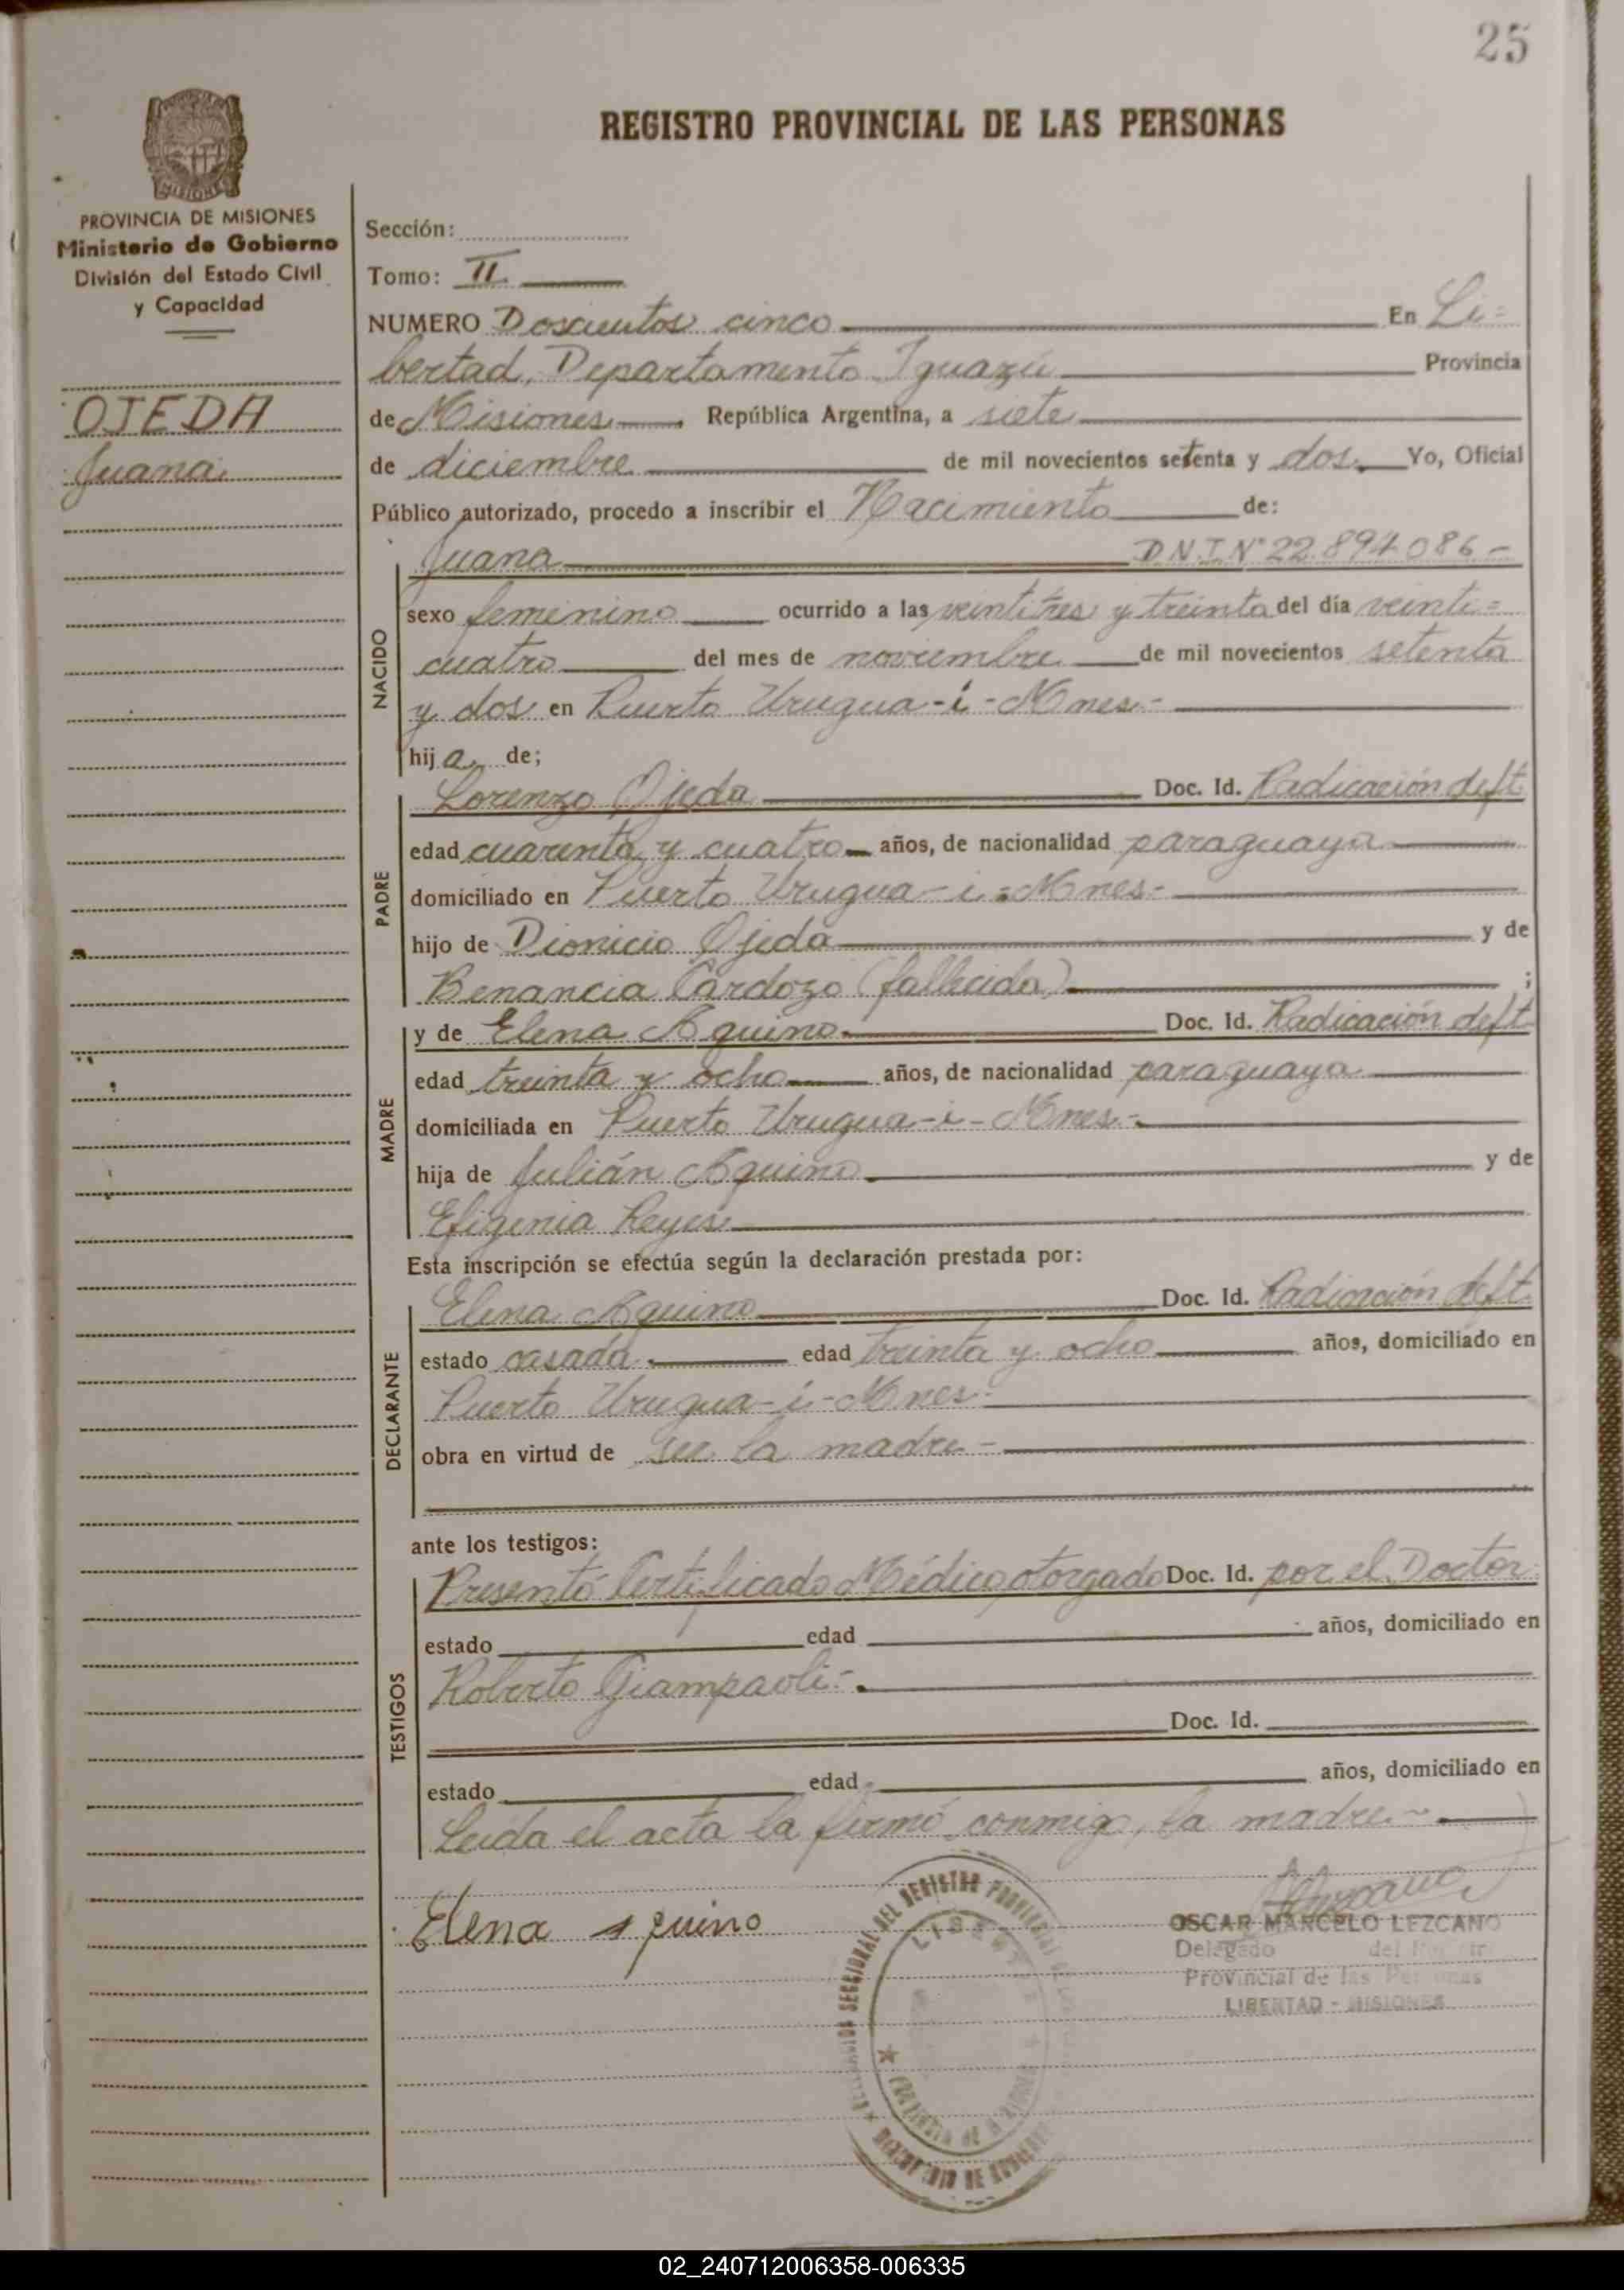 25
REGISTRO PROVINCIAL DE LAS PERSONAS
MISIONES
PROVINCIA DE MISIONES
Ministerio de Gobierno
División del Estado Civil
y Capacidad
OJEDA
Juana
Sección:
Tomo: II
NUMERO Doscientos cinco En Li=
bertad, Departamento Iguazú Provincia
de Misiones República Argentina, a siete
de diciembre de mil novecientos setenta y dos. Yo, Oficial
Público autorizado, procedo a inscribir el Nacimiento de:
Juana D.N.I. N° 22.894.086 -
NACIDO
sexo femenino ocurrido a las veintitres y treinta del día veinti=
cuatro del mes de noviembre de mil novecientos setenta
y dos en Puerto Urugua-i-Mnes.-
hija de;
PADRE
Lorenzo Ojeda Doc. Id. Radicación deft.
edad cuarenta y cuatro años, de nacionalidad paraguaya
domiciliado en Puerto Urugua-i-Mnes.-
hijo de Dionicio Ojeda y de
Benancia Cardozo (fallecida) ;
MADRE
y de Elena Aquino Doc. Id. Radicación deft.
edad treinta y ocho años, de nacionalidad paraguaya
domiciliada en Puerto Urugua-i-Mnes.-
hija de Julián Aquino y de
Efigenia Reyes
Esta inscripción se efectúa según la declaración prestada por:
DECLARANTE
Elena Aquino Doc. Id. Radicación deft.
estado casada edad treinta y ocho años, domiciliado en
Puerto Urugua-i-Mnes.-
obra en virtud de ser la madre-
ante los testigos:
TESTIGOS
Presentó Certificado Médico otorgado Doc. Id. por el Doctor
estado edad años, domiciliado en
Roberto Giampaoli.-
Doc. Id.
estado edad años, domiciliado en
Leida el acta la firmó conmigo, la madre.-
Elena Aquino
OSCAR MARCELO LEZCANO
Delegado del
Provincial de las Personas
LIBERTAD - MISIONES
SECCIONAL DEL REGISTRO
02_240712006358-006335